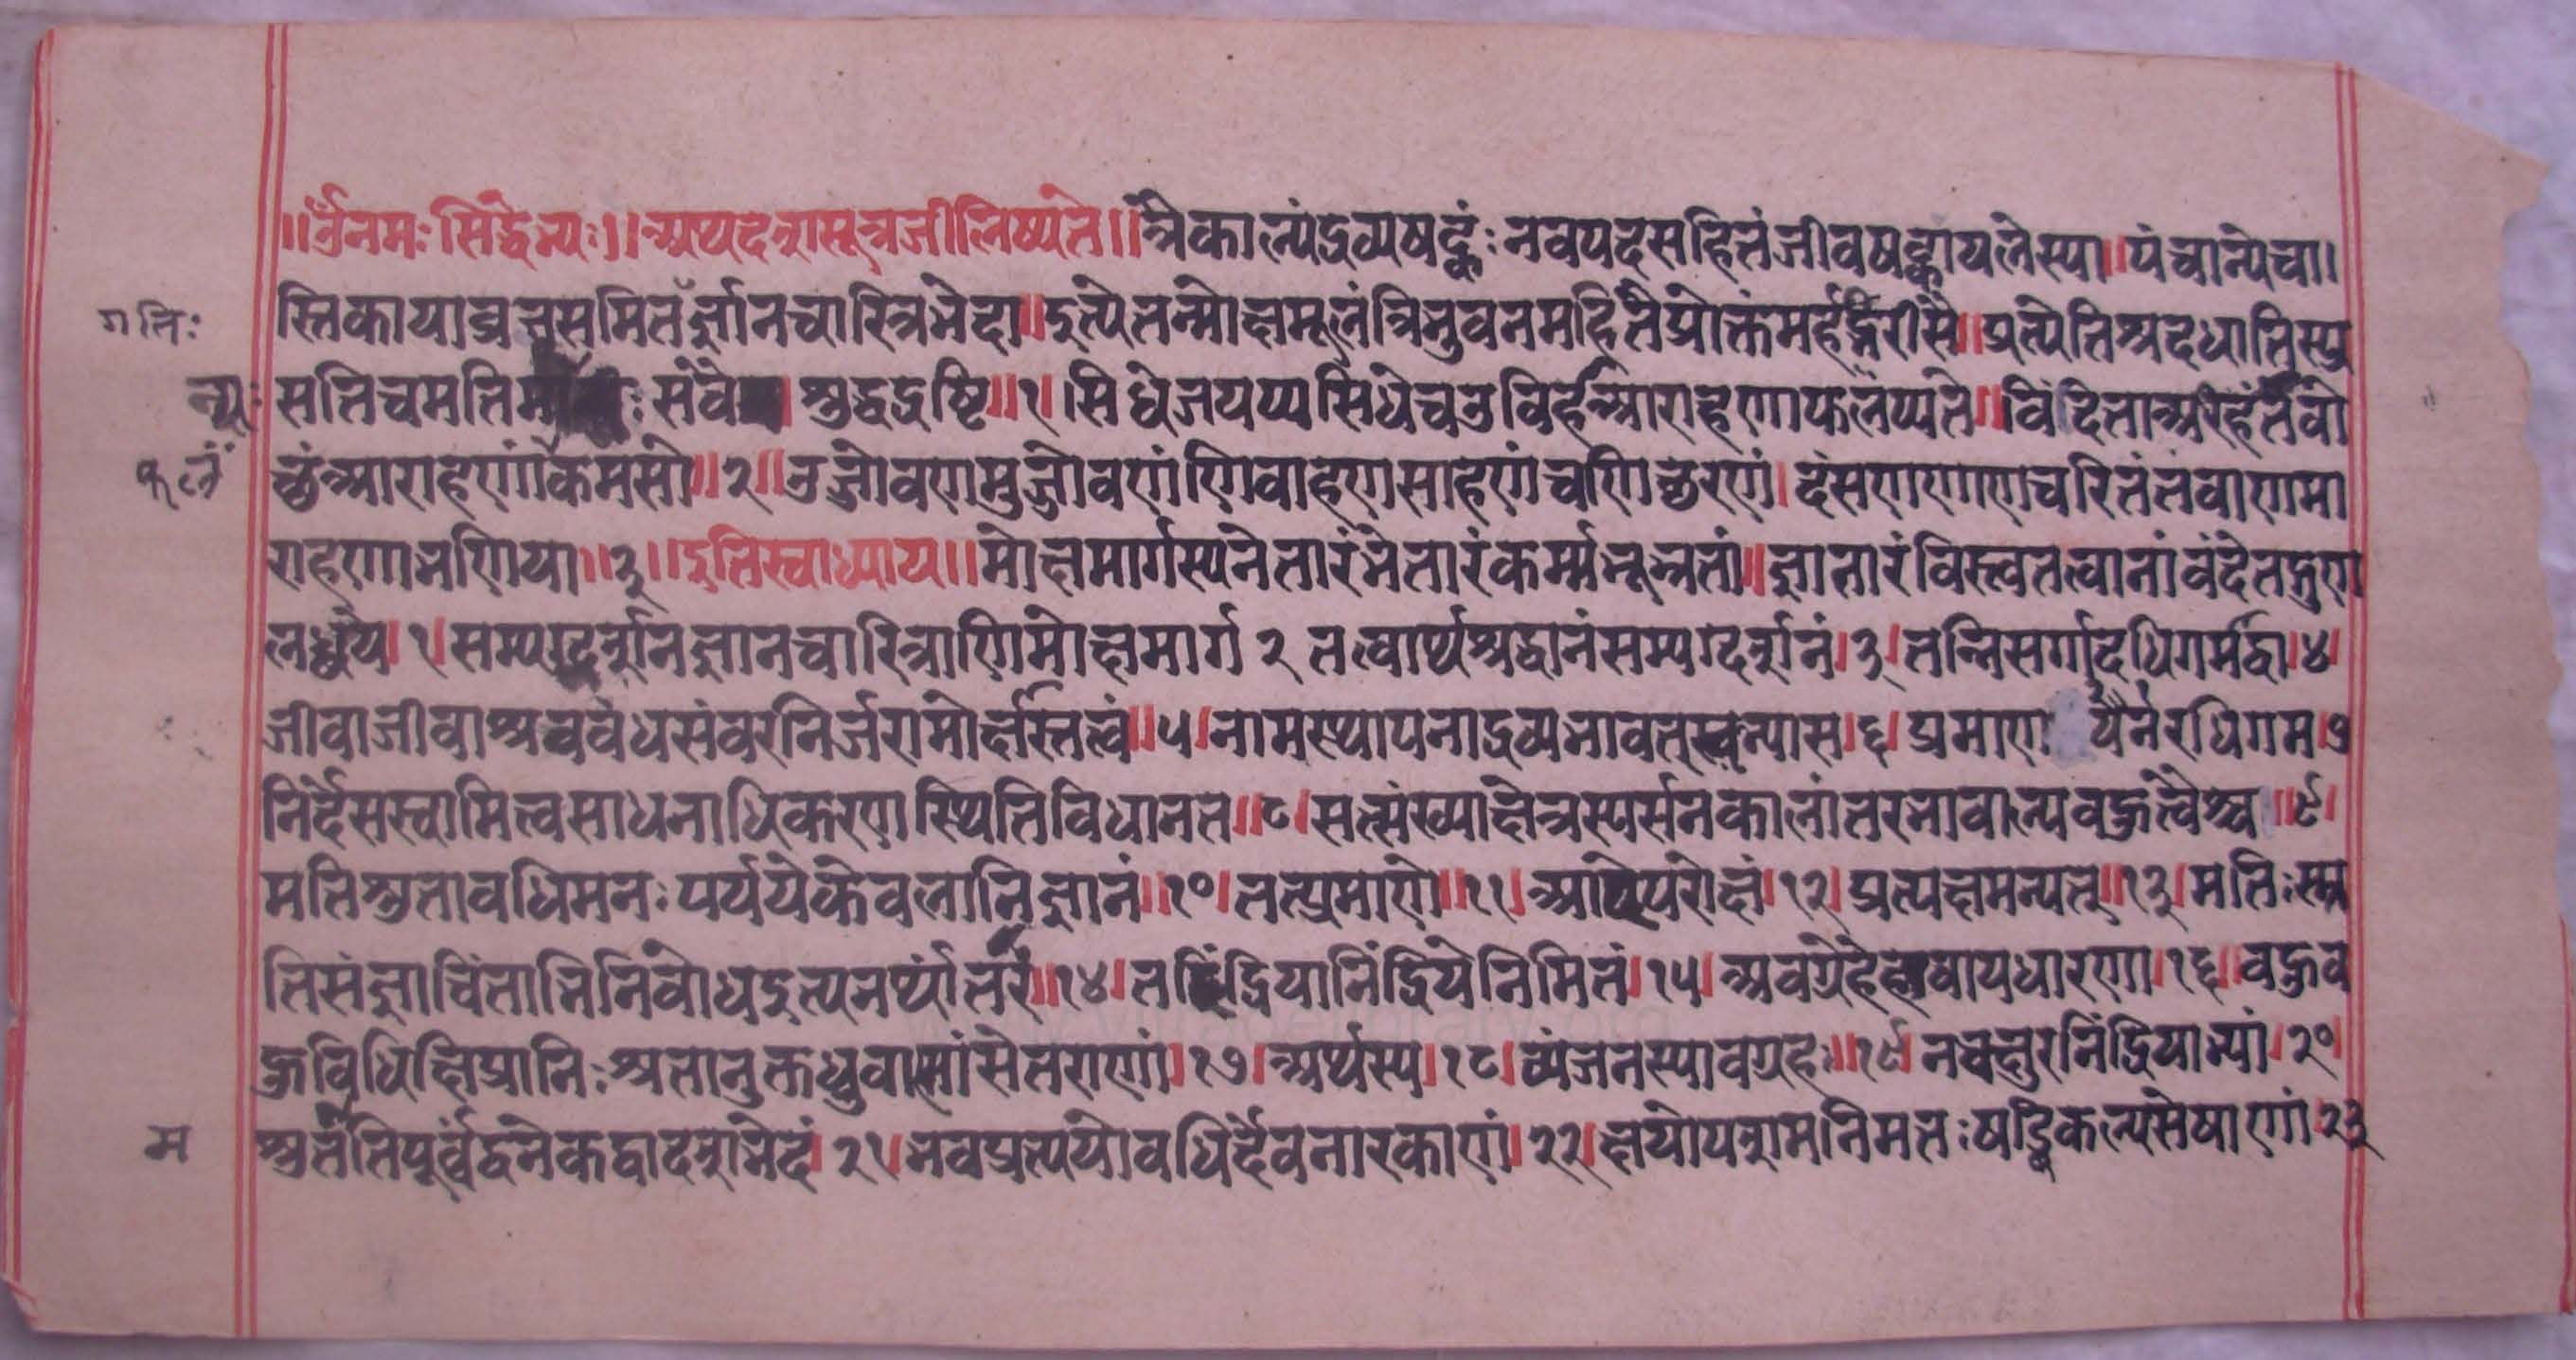 ॥ॐनमः सिद्धेभ्यः॥ अथदशसूत्रजीलिष्यते॥ त्रैकाल्यंद्रव्यषट्कंः नवपदसहितंजीवषट्कायलेस्या॥ पंचान्येचा॥
गतिः स्तिकायाव्रतसमितर्ज्ञानचारित्रभेदा॥ इत्येतन्मोक्षमूलंत्रिभुवनमहितैप्रोक्तंमर्हद्भिरीसै॥ प्रत्येतिश्रदधातिस्पृ
न्यः सतिचमतिमा सवै शुद्धदृष्टि॥१॥ सिधेजयप्यसिधेचउविहंआराहणाफलंप्यते॥ वंदिताअरहंतेवो
फलं छंआराहणंकमसो॥२॥ उजोवणमुजोवणंणिवाहणसाहणंचणिछरणं। दंसणणाणचरितंतवाणमा
राहणाभणिया॥३॥ इतिस्वाध्याय॥ मोक्षमार्गस्यनेतारंभेतारंकर्म्मभूभृतां॥ ज्ञातारंविस्वतत्वानांवंदेतद्गुण
लब्धये।१। सम्यग्दर्शनज्ञानचारित्राणिमोक्षमार्ग २ तत्वार्थश्रद्धानंसम्यग्दर्शनं।३। तन्निसर्गादधिगमद्वा।४।
जीवाजीवाश्रवबंधसंवरनिर्जरामोर्क्षास्तित्वं॥५। नामस्थापनाद्रव्यभावतस्तन्यास।६। प्रमाण यैर्नरधिगम।७
निर्देसस्वामित्वसाधनाधिकरणस्थितिविधानत॥८। सत्संख्याक्षेत्रस्पर्सनकालांतरभावाल्पवहुत्वैश्च॥९।
मतिश्रुतावधिमनःपर्ययेकेवलानिज्ञानं॥१०। तत्प्रमाणे॥११। आद्येपरोक्षं।१२। प्रत्यक्षमन्यत्॥१३। मतिःस्मृ
तिसंज्ञाचिंताभिनिवोधइत्यनर्थांतरं॥१४। तदिंद्रियानिंद्रियेनिमितं।१५। अवग्रहेहावायधारणा।१६। वहुव
हुविधिक्षिप्रानिःश्रतानुक्तध्रुवाणांसेतराणां।१७। अर्थस्य।१८। व्यंजनस्यावग्रहः॥१९। नचक्षुरनिंद्रियाभ्यां।२०।
म श्रुतंतिपूर्वंद्वनेकद्वादशभेदं।२१। भवप्रत्ययोवधिर्देवनारकाणं।२२। क्षयोपशमनिमतःषड्विकल्पसेषाणां २३